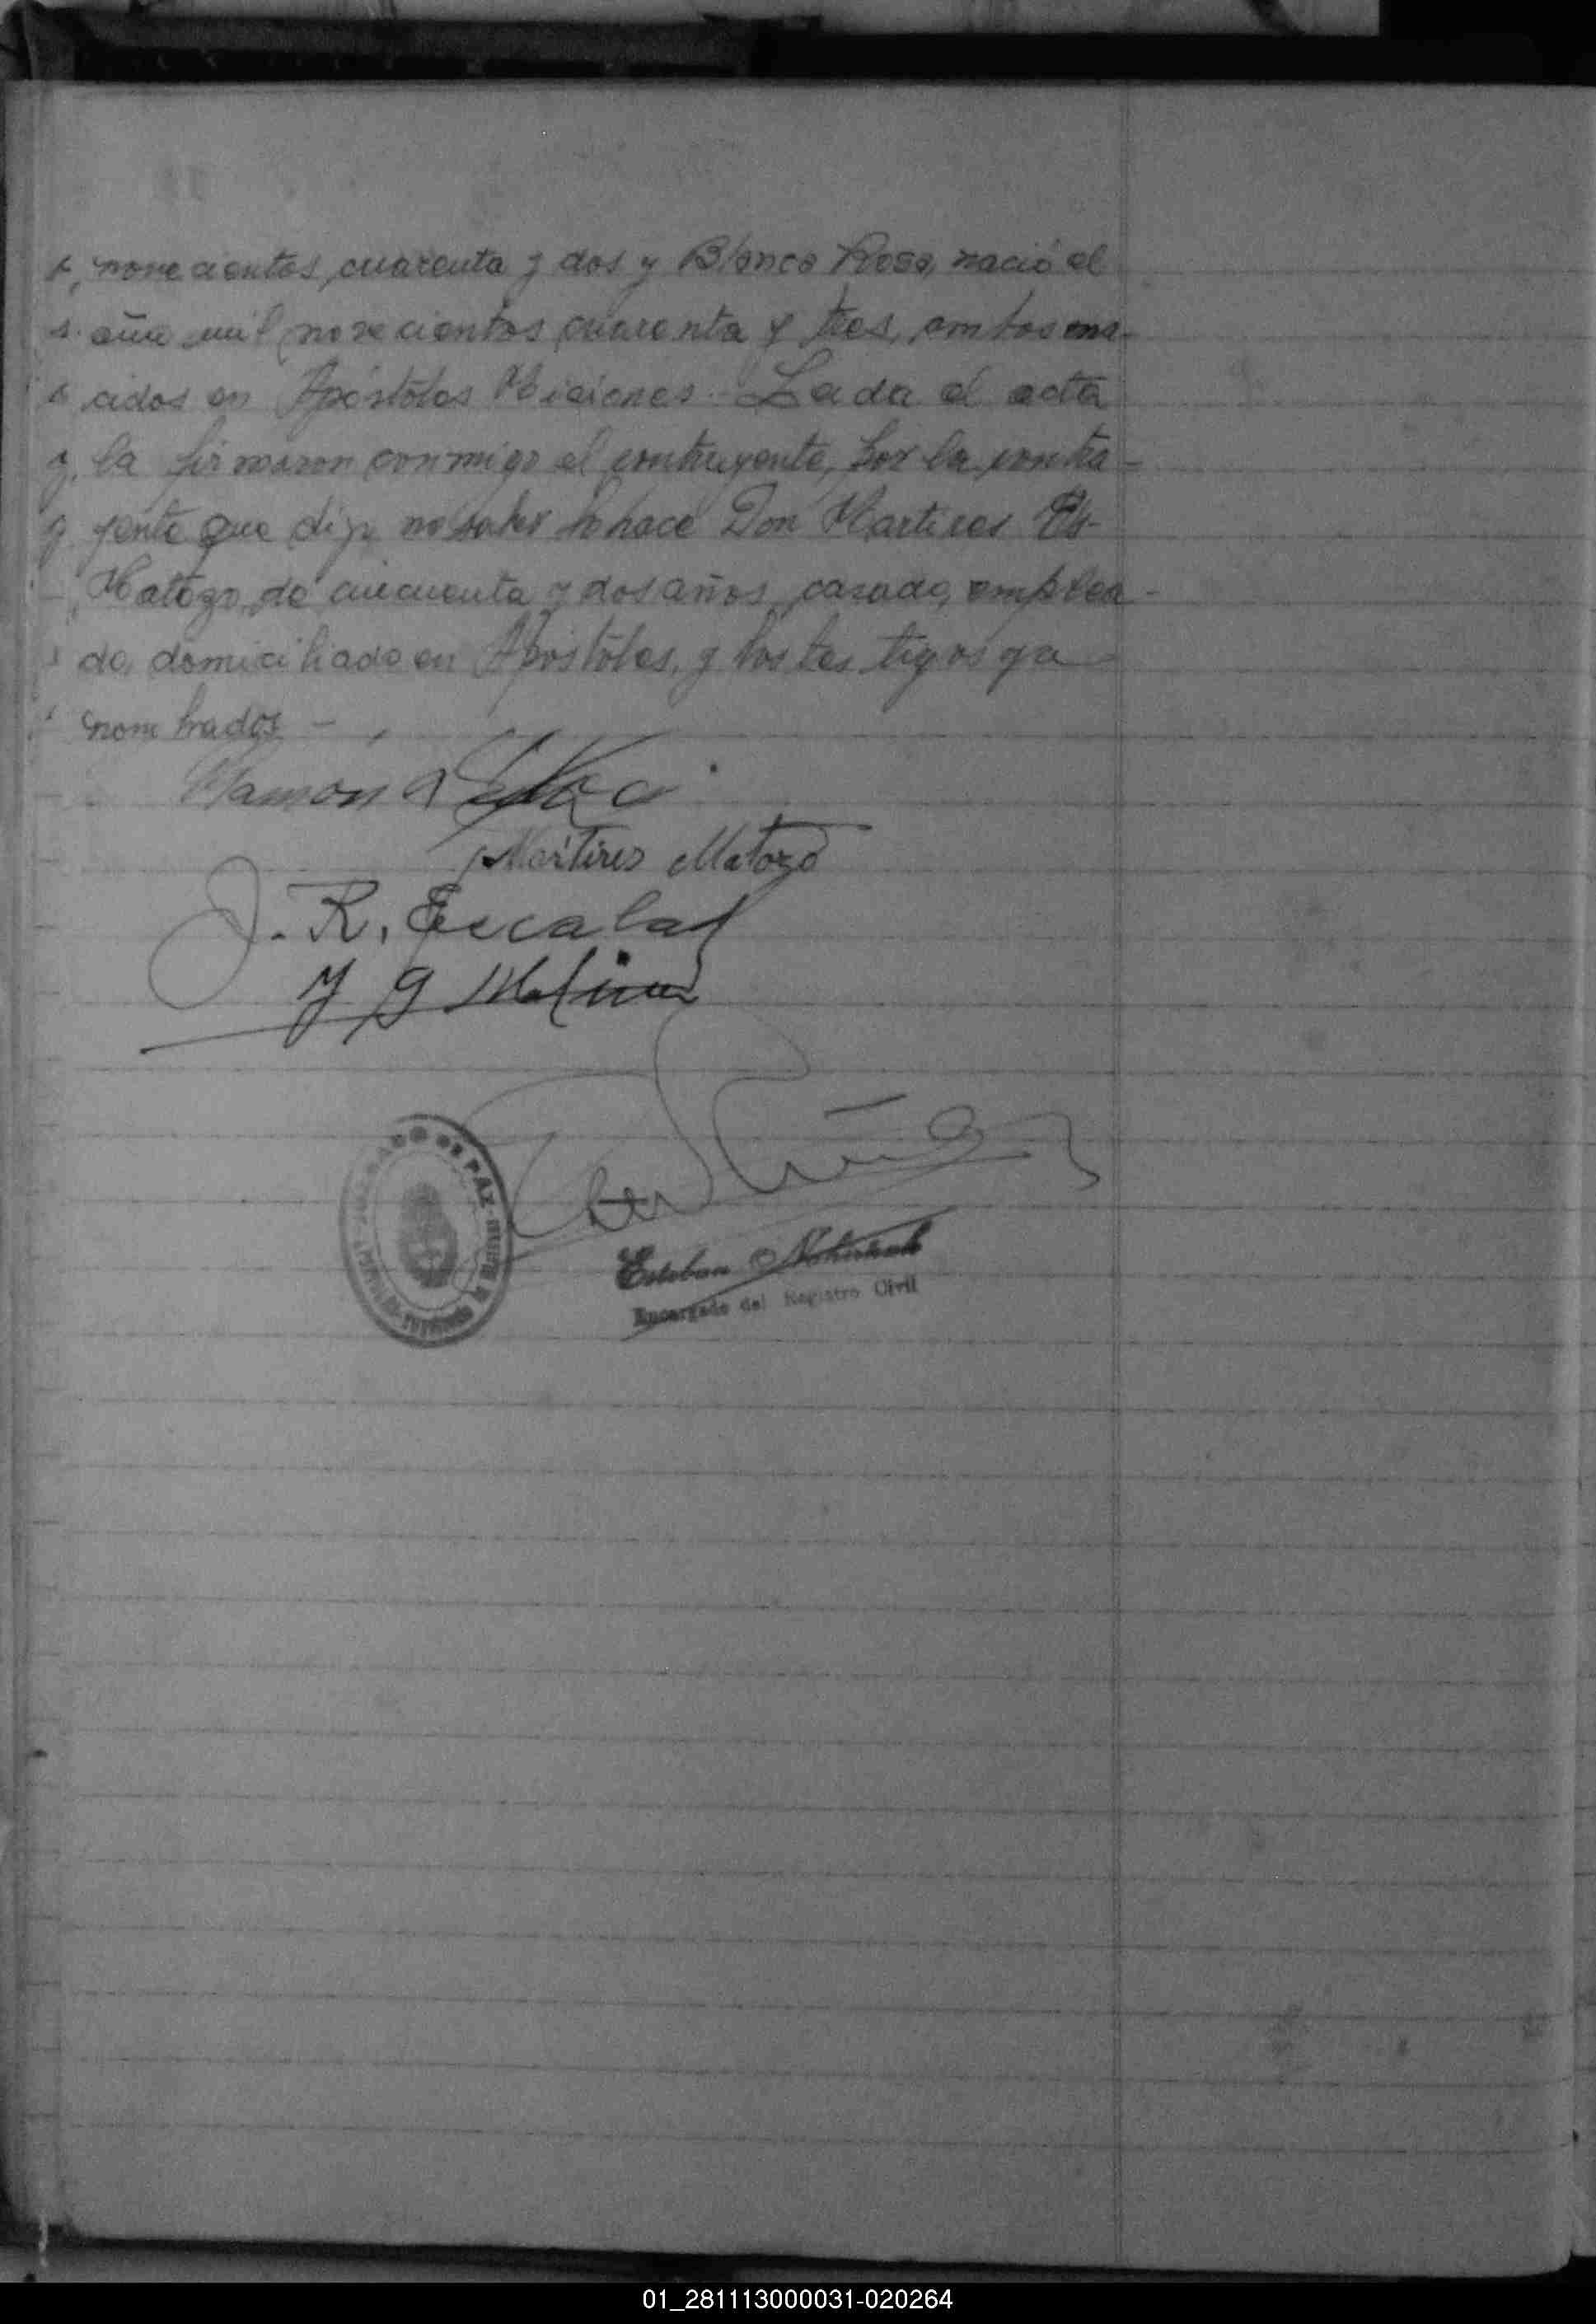 novecientos cuarenta y dos y Blanca Rosa, nació el
año mil novecientos cuarenta y tres, ambos na-
cidos en Apóstóles Miciones. Leida el acta
la firmaron conmigo el contrayente, por la contra-
yente que dijo no saber lo hace Don Martires
Matozo, de cincuenta y dos años, casado, emplea-
do, domiciliado en Apóstóles, y los testigos ya
nombrados -
Ramon
Martires Matozo
J. R. Escalad
JUZGADO DE PAZ
Esteban
Encargado del Registro Civil
01_281113000031-020264